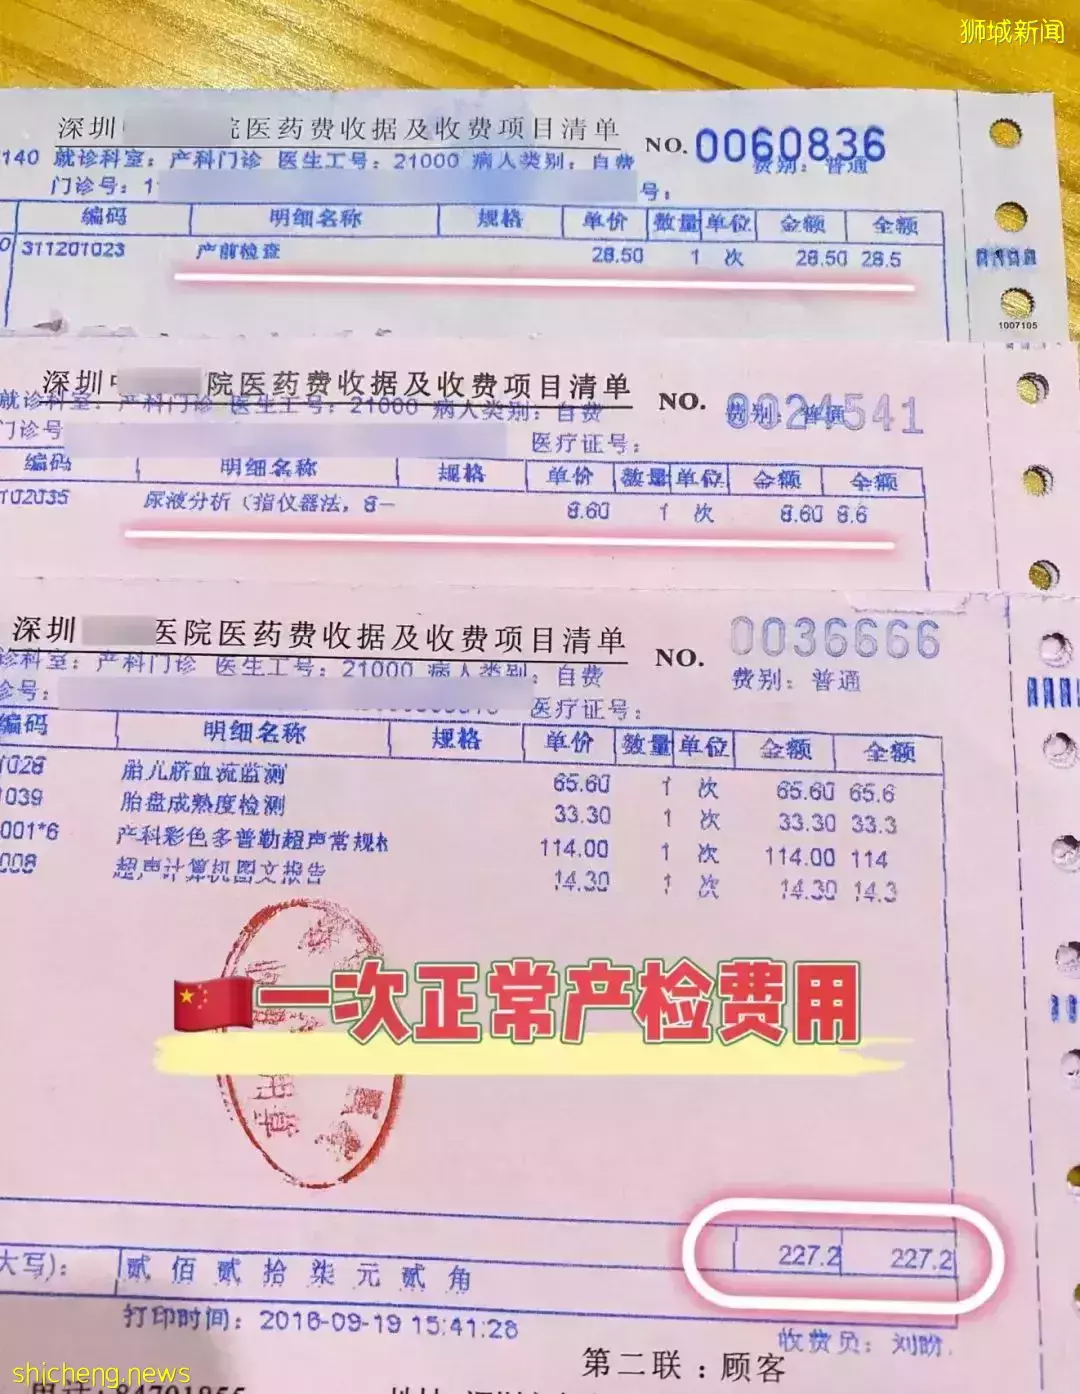 狮城新闻
深圳 院医药费收据及收费项目清单 NO. 0060836
140 就诊科室：产科门诊 医生工号：21000 病人类别：自费 费别：普通
门诊号：1 号：
编码 明细名称 规格 单价 数量 单位 金额 金额
311201023 产前检查 28.50 1 次 28.50 28.5
1007105
深圳 院医药费收据及收费项目清单 NO. 0024541
就诊科室：产科门诊 医生工号：21000 病人类别：自费 费别：普通
门诊号 医疗证号：
编码 明细名称 规格 单价 数量 单位 金额 金额
102035 尿液分析（指仪器法，8— 8.60 1 次 8.60 8.6
深圳 医院医药费收据及收费项目清单 NO. 0036666
诊科室：产科门诊 医生工号：21000 病人类别：自费 费别：普通
诊号： 医疗证号：
编码 明细名称 规格 单价 数量 单位 金额 金额
1028 胎儿脐血流监测 65.60 1 次 65.60 65.6
1039 胎盘成熟度检测 33.30 1 次 33.30 33.3
001*6 产科彩色多普勒超声常规检 114.00 1 次 114.00 114
008 超声计算机图文报告 14.30 1 次 14.30 14.3
一次正常产检费用
227.2 227.2
大写)： 贰佰贰拾柒元贰角
打印时间：2016-09-19 15:41:28 收费员：刘盼
第二联：顾客
shicheng.news